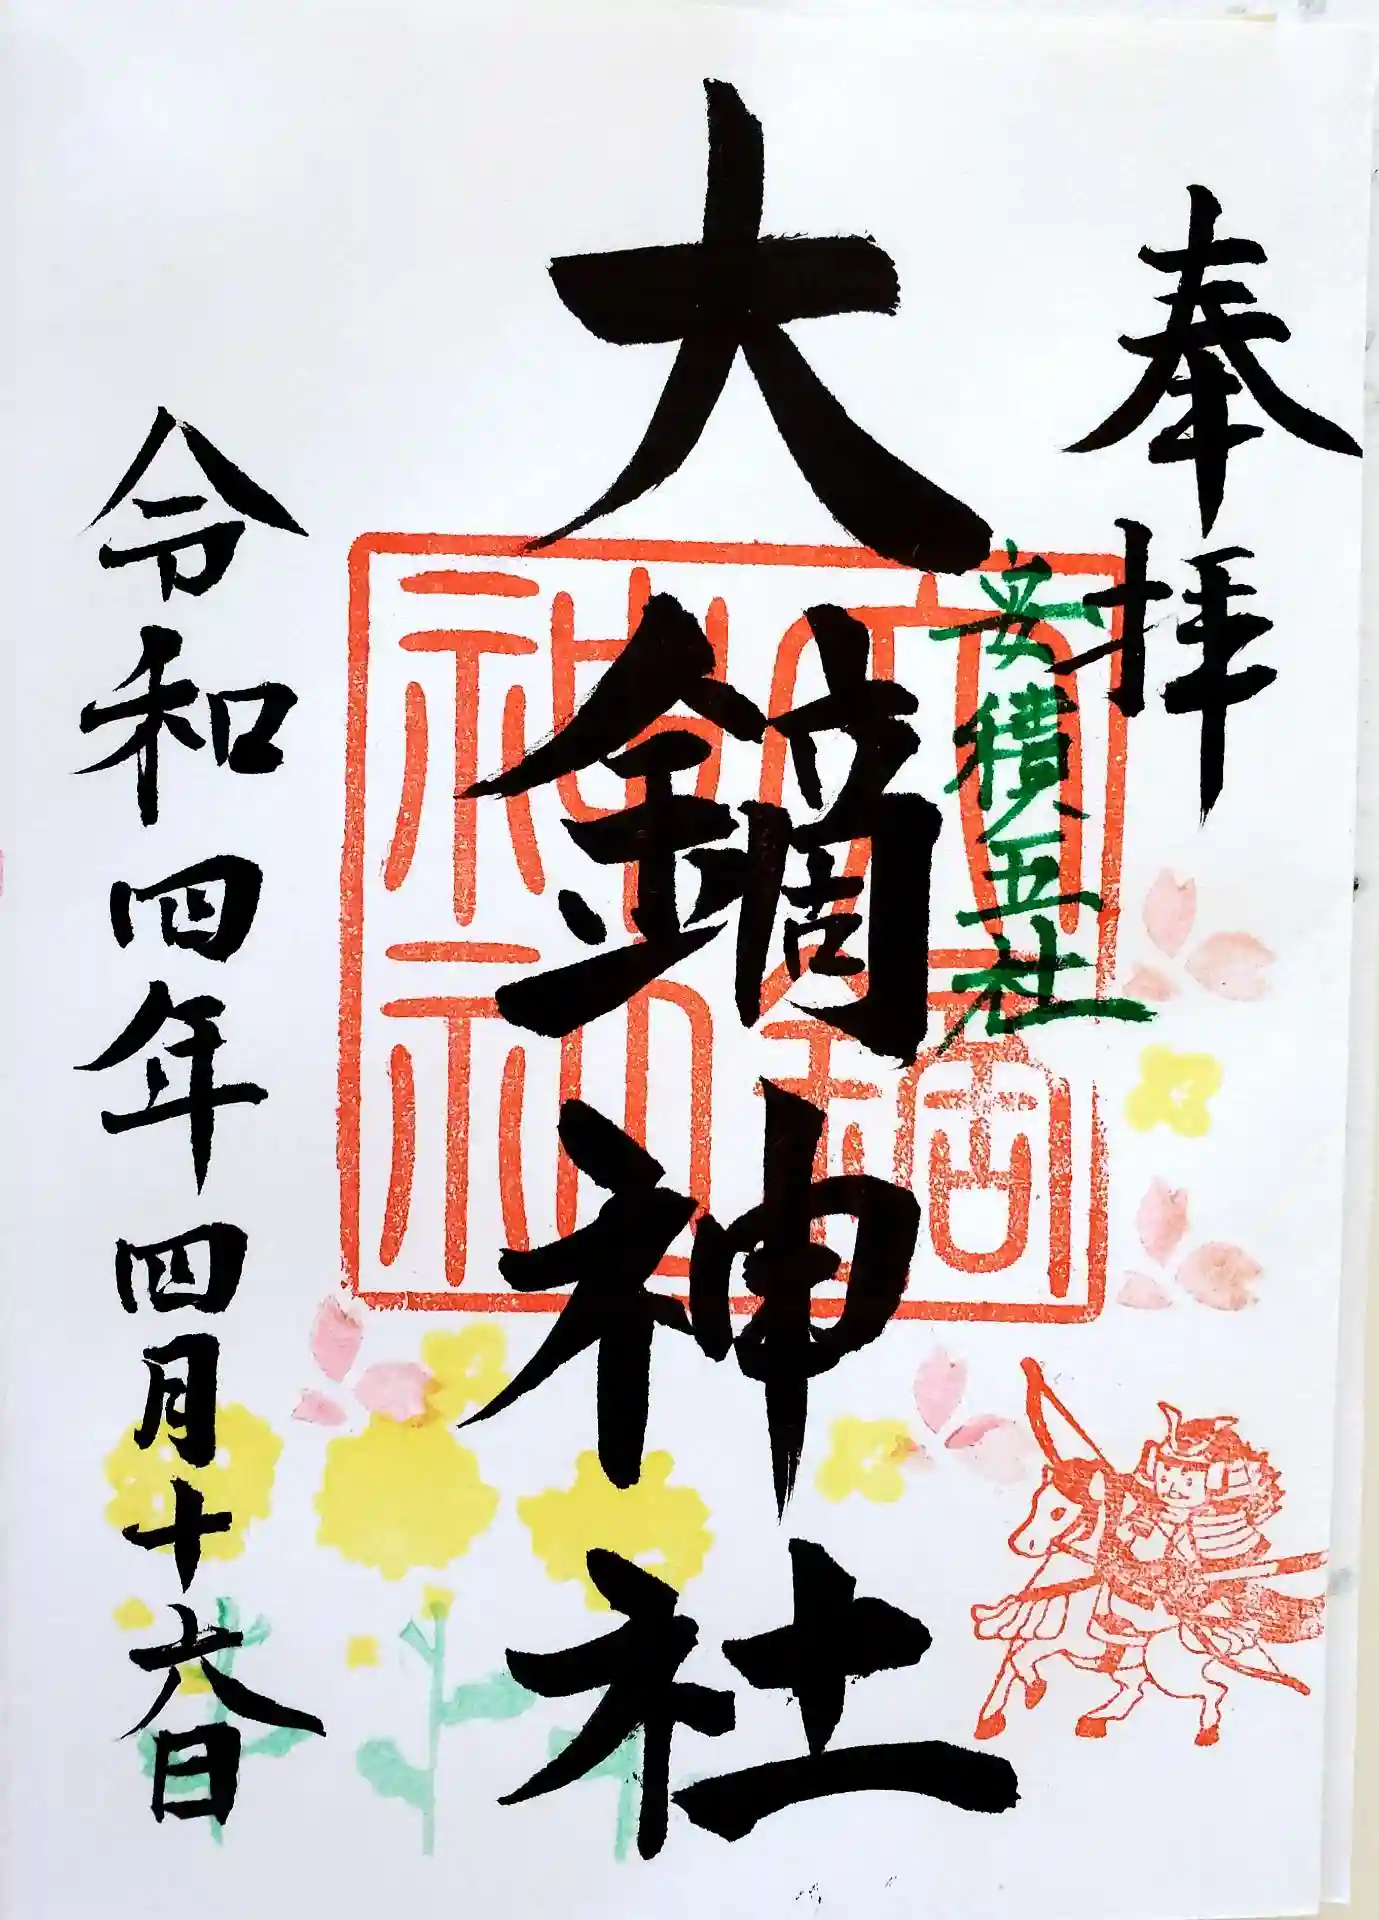 奉拝
安積五社
大鏑神社
大鏑神社
令和四年四月十六日